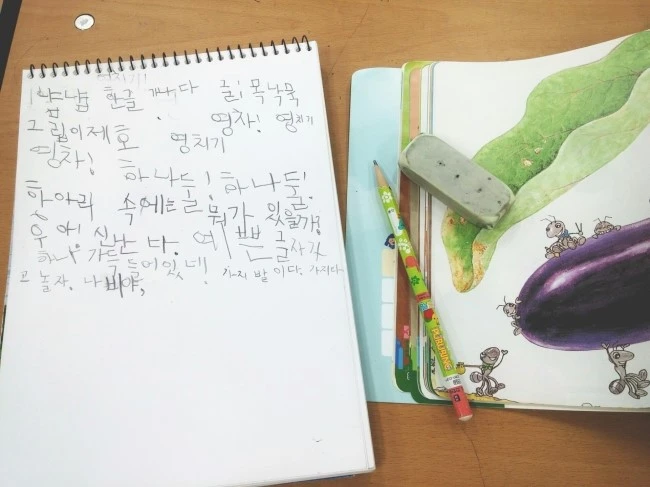 영치기!
냠냠 한글 가나다 글! 목낙묵
그림이제호 영차! 영치기
영차! 영치기
하나둘! 하나둘!
항아리 속에는 뭐가 있을까?
우아! 신난다. 예쁜 글자가
하나 가득 들어있네! 가지 밭이다. 가지다
고 놀자. 나비야,